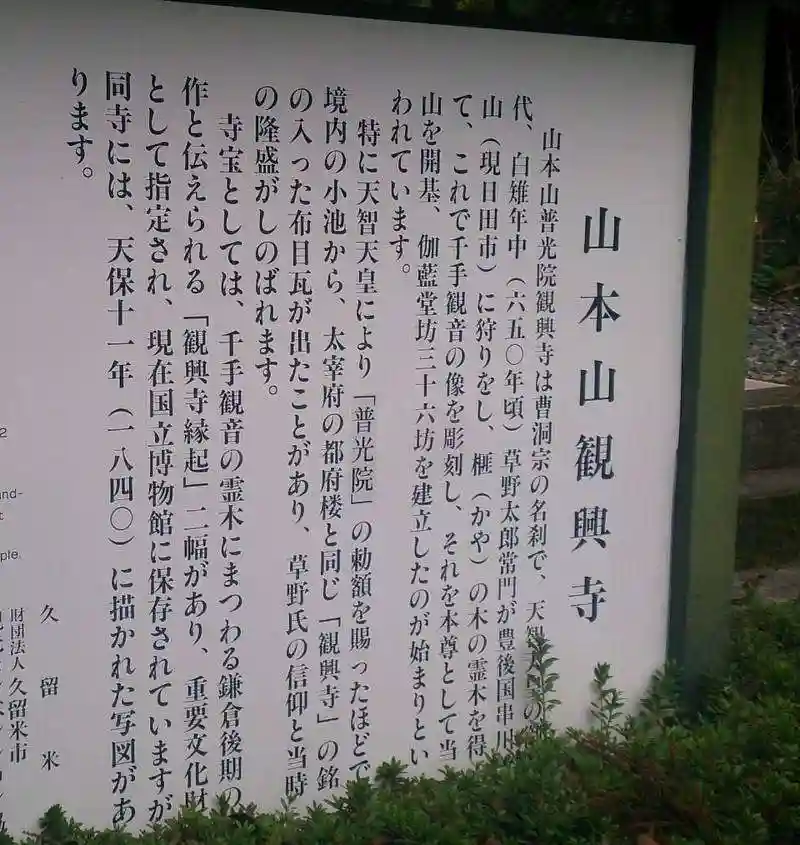 山本山観興寺
山本山普光院観興寺は曹洞宗の名刹で、天智
代、白雉年中（六五〇年頃）草野太郎常門が豊後国串川
山（現日田市）に狩りをし、榧（かや）の木の霊木を得
て、これで千手観音の像を彫刻し、それを本尊として当
山を開基、伽藍堂坊三十六坊を建立したのが始まりとい
われています。
特に天智天皇により「普光院」の勅額を賜ったほどで
境内の小池から、太宰府の都府楼と同じ「観興寺」の銘
の入った布目瓦が出たことがあり、草野氏の信仰と当時
の隆盛がしのばれます。
寺宝としては、千手観音の霊木にまつわる鎌倉後期の
作と伝えられる「観興寺縁起」二幅があり、重要文化財
として指定され、現在国立博物館に保存されていますが
同寺には、天保十一年（一八四〇）に描かれた写図があ
ります。
久留米
財団法人 久留米市
2
and-
ple.